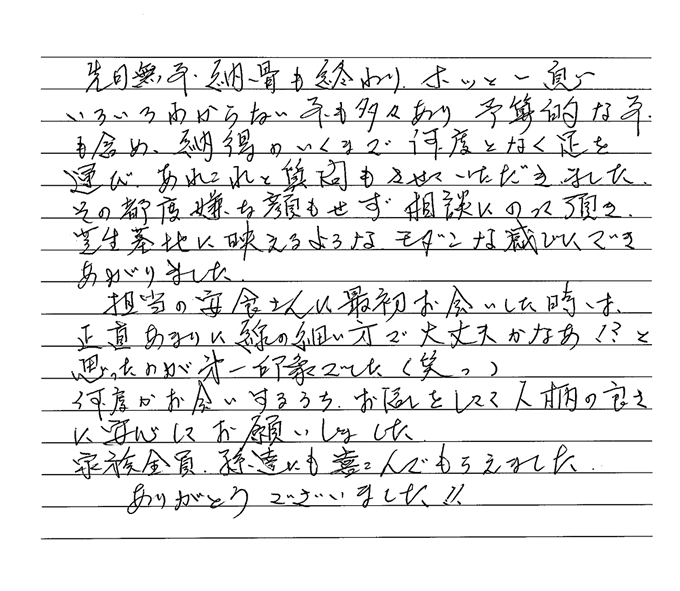 先日無事、納骨も終わり、ホッと一息。
いろいろわからない事も多々あり 予算的な事
も含め、納得のいくまで 何度となく足を
運び、あれこれと質問もさせていただきました。
その都度嫌な顔もせず 相談にのって頂き、
芝生墓地に映えるような、モダンな感じにでき
あがりました。
担当の安食さんに最初お会いした時は、
正直あまりに線の細い方で大丈夫かなあ!?と
思ったのが第一印象でした(笑っ)
何度かお会いするうち、お話しをしてて人柄の良さ
に安心してお願いしました。
家族全員、孫達にも喜こんでもらえました。
ありがとうございました!!